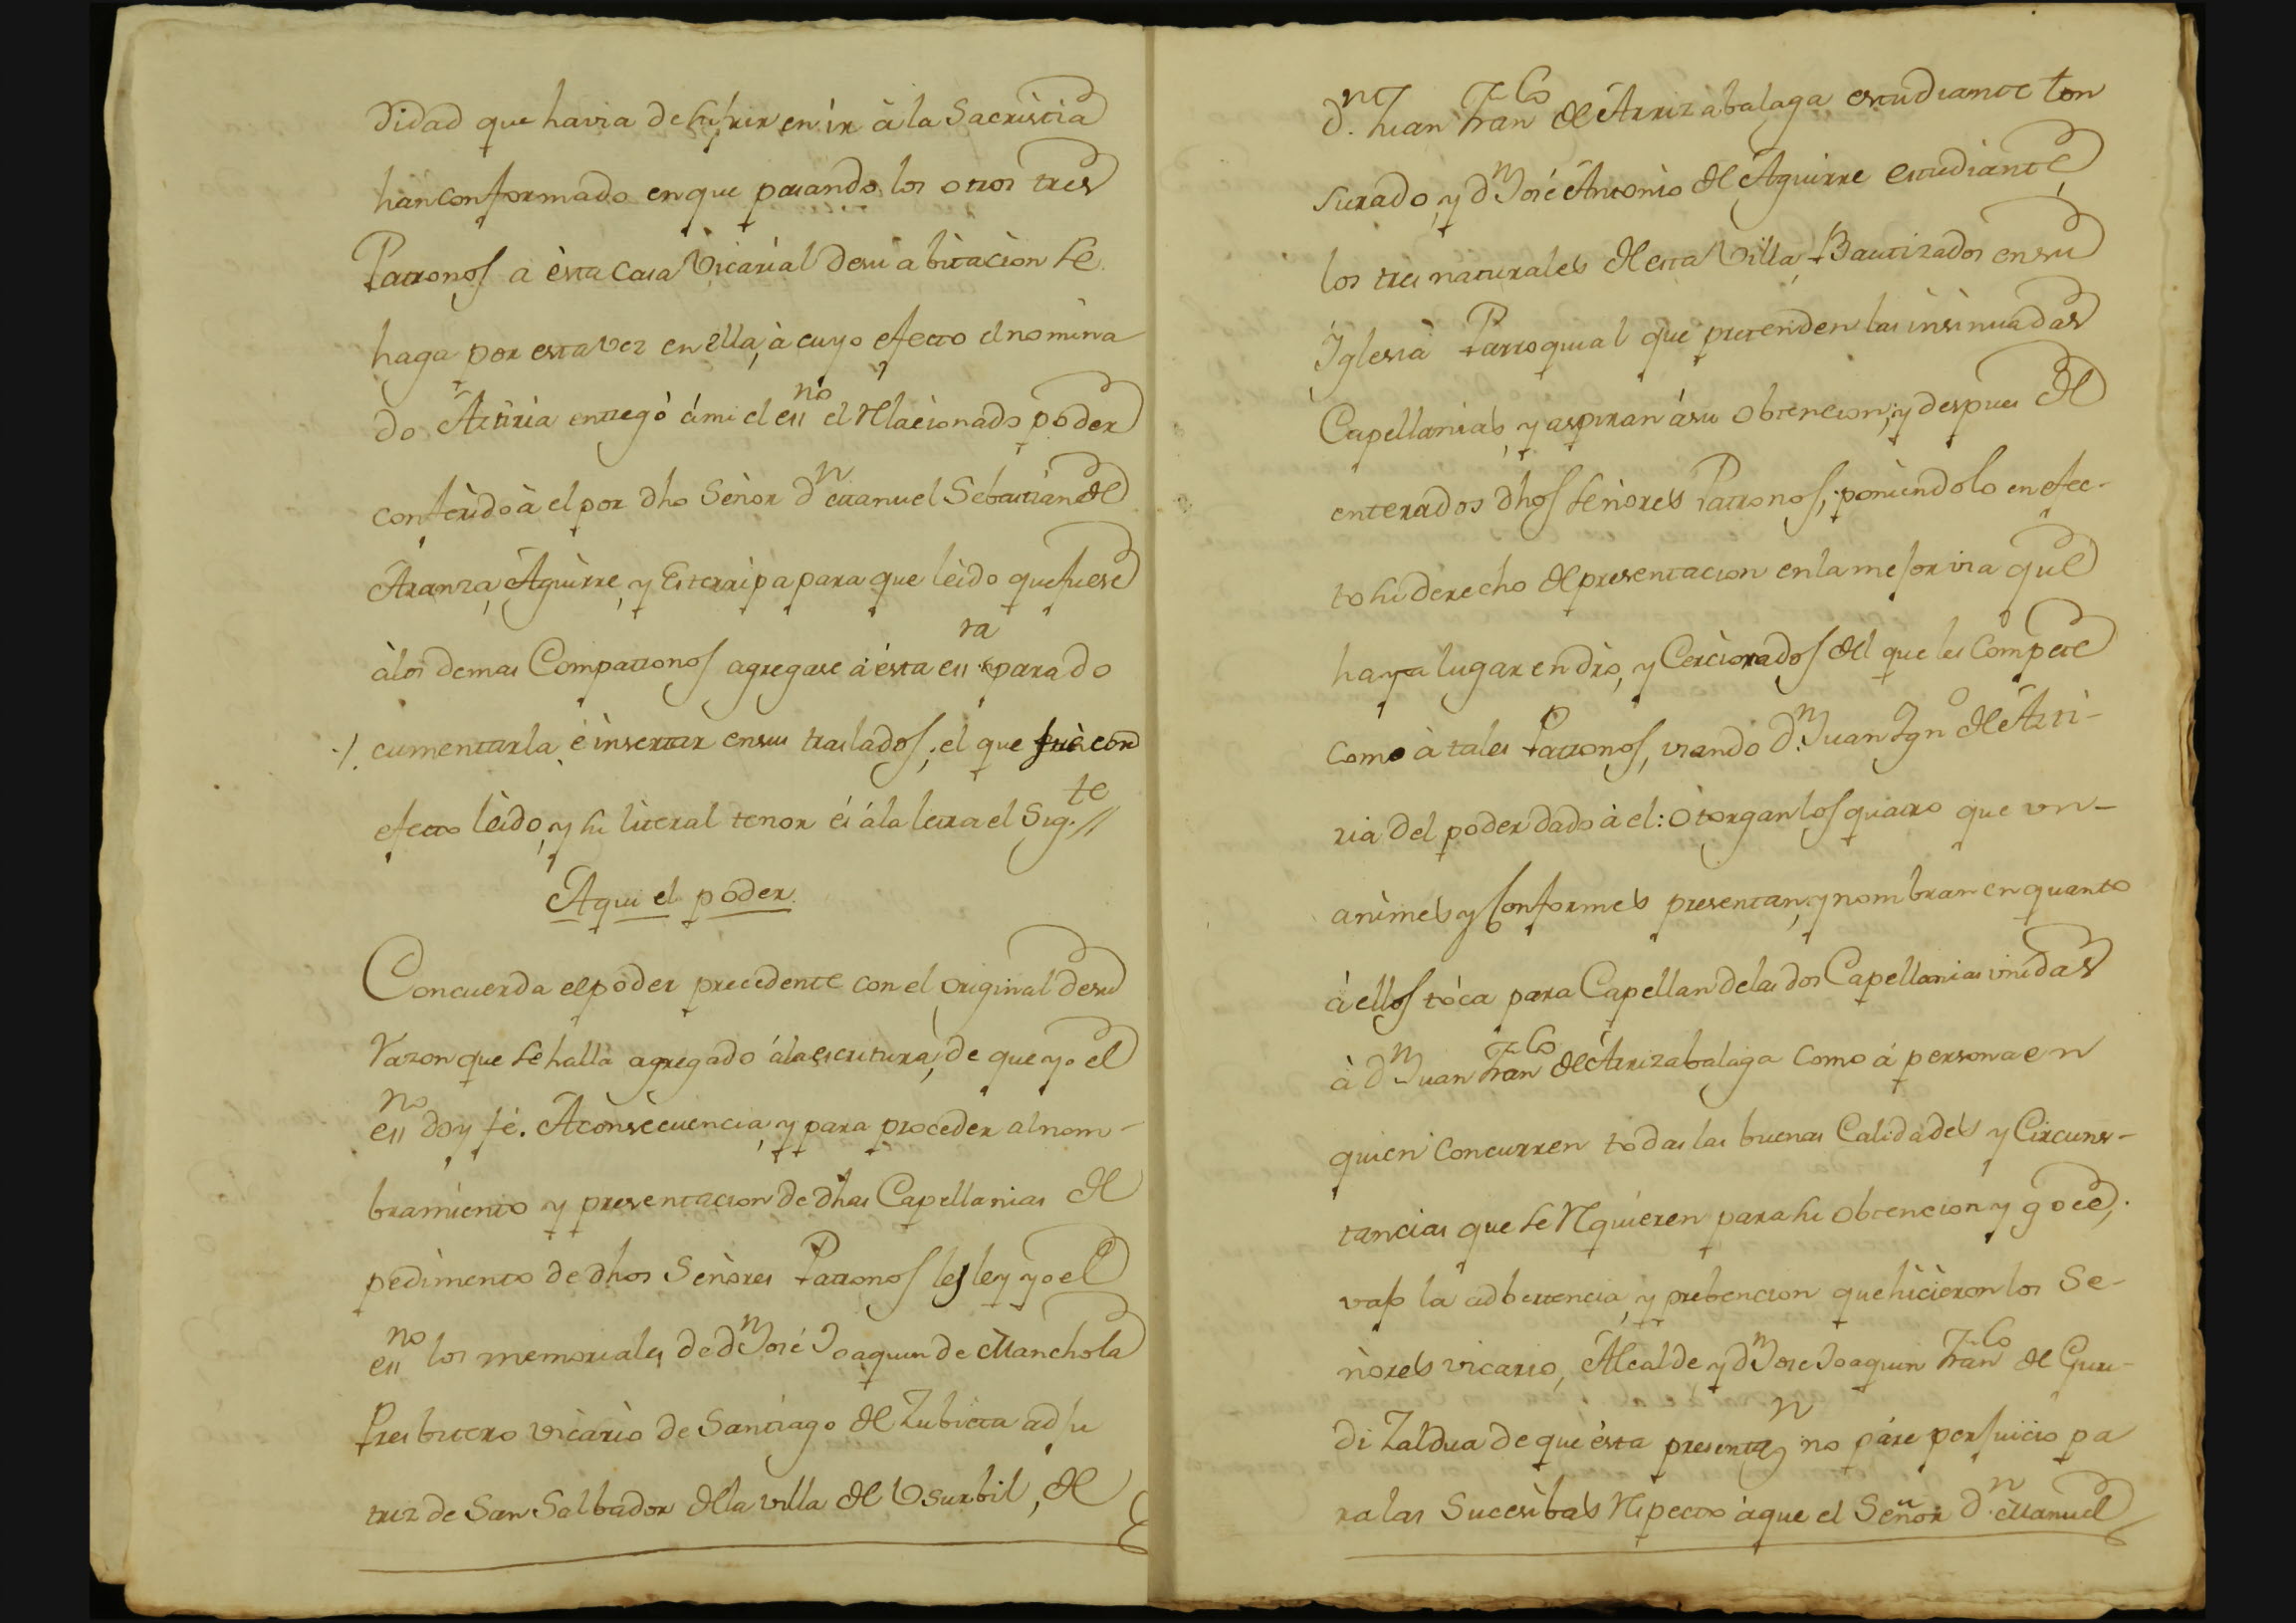 didad que havia de sufrir en ir à la Sacristia
han conformado en que pasando los otros tres
Patronos a èsta Casa Vicarial de su àbitacion se
haga por esta vez en ella, à cuyo efecto el nomina
do Aztiria entregó ámi el essno el relacionado poder
conferido à el por dho Señor dn Manuel Sebastian de
Aranza, Aguirre, y Esterripa para que leido que fuese
àlos demas Compatronos agregase á ésta essra para do
cumentarla, é insertar en sus traslados; el que fuè con
efecto leido, y su literal tenor és ála letra el Sigte //
Aqui el poder.
Concuerda el poder precedente con el original de su
razon que se halla agregado álaescritura, de que yo el
essno doy fé. A consecuencia, y para proceder al nom-
bramiento y presentacion de dhas Capellanias de
pedimento de dhos Señores Patronos les ley yo el
essno los memoriales de dn José Joaquin de Manchola
Presbitero Vicario de Santiago de Zubieta ad su
triz de San Salbador de la villa de Vsurbil, de
dn Juan Franco de Arrizabalaga estudiante ton
surado, y dn José Antonio de Aguirre estudiante
los tres naturales de esta Villa, Bautizados en su
Iglesia Parroquial que pretenden las insinuadas
Capellanias, y aspiran ásu obtencion; y despues de
enterados dhos señores Patronos, poniendolo en efec-
to su derecho de presentacion en la mejor via que
haya lugar en dro, y Cerciorados del que les Compete
como à tales Patronos, vsando dn Juan Igno de Azti-
ria del poder dado à el: Otorgan los quatro que vn-
animes y Conformes presentan, y nombran en quanto
à ellos tóca para Capellan de las dos Capellanias vnidas
à dn Juan Franco de Arrizabalaga como á persona en
quien concurren todas las buenas Calidades y Circuns-
tancias que se requieren para su obtencion y goce,
vajo la adbertencia, y prebencion que hicieron los Se-
ñores vicario, Alcalde y dn Jose Joaquin Franco de Guru-
di Zaldua de que ésta presentan no páre perjuicio pa
ra las Sucesibas respecto àque el Señor dn Manuel